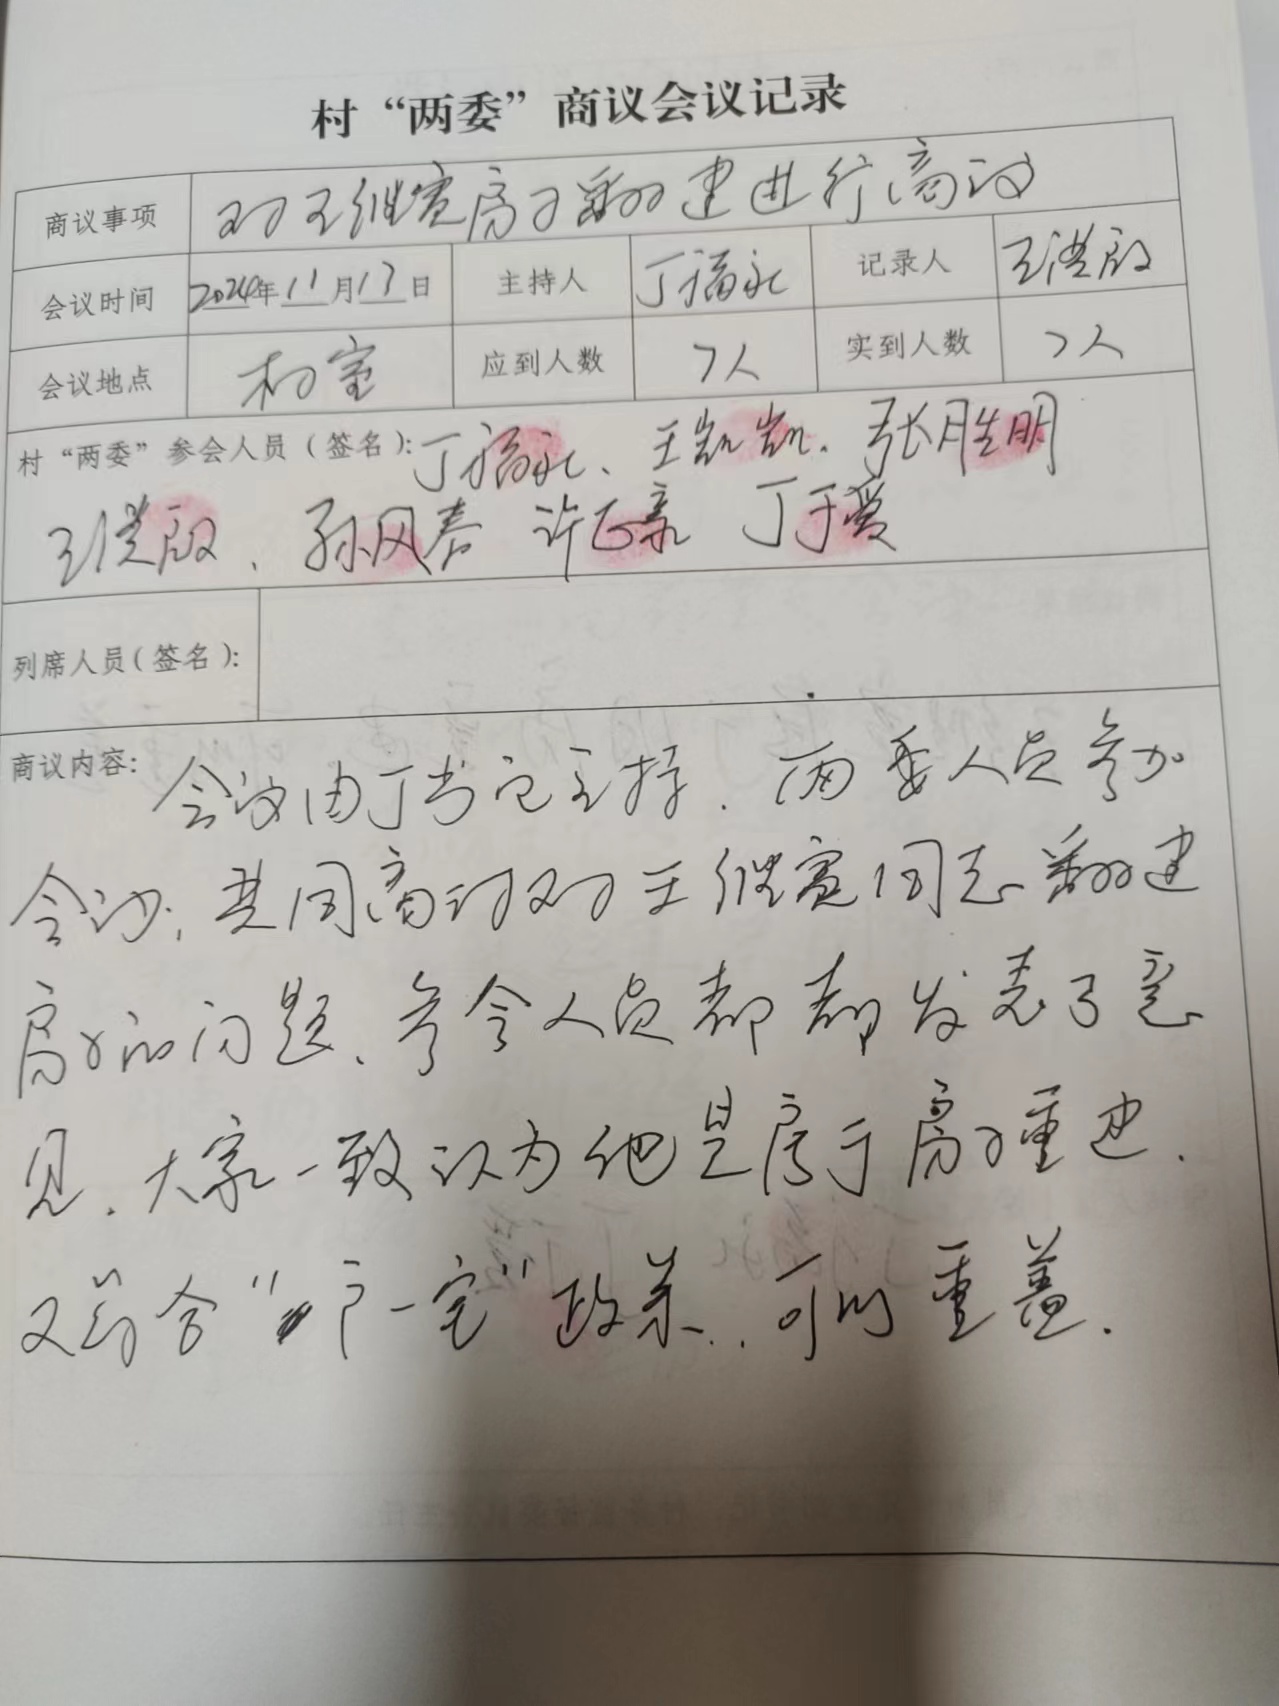 村“两委”商议会议记录
商议事项 对王继宽房子翻建进行商议
会议时间 2024年11月13日 主持人 丁福永 记录人 王洪殿
会议地点 村室 应到人数 7人 实到人数 7人
村“两委”参会人员(签名): 丁福永、王凯凯、张胜明
王洪殿、孙风春 许正亲 丁于爱
列席人员(签名):
商议内容: 会议由丁书记主持、两委人员参加
会议;共同商讨对王继宽同志翻建
房子的问题、参会人员都都发表了意
见、大家一致认为他是属于房子重建、
又符合“一户一宅”政策、可以重盖.